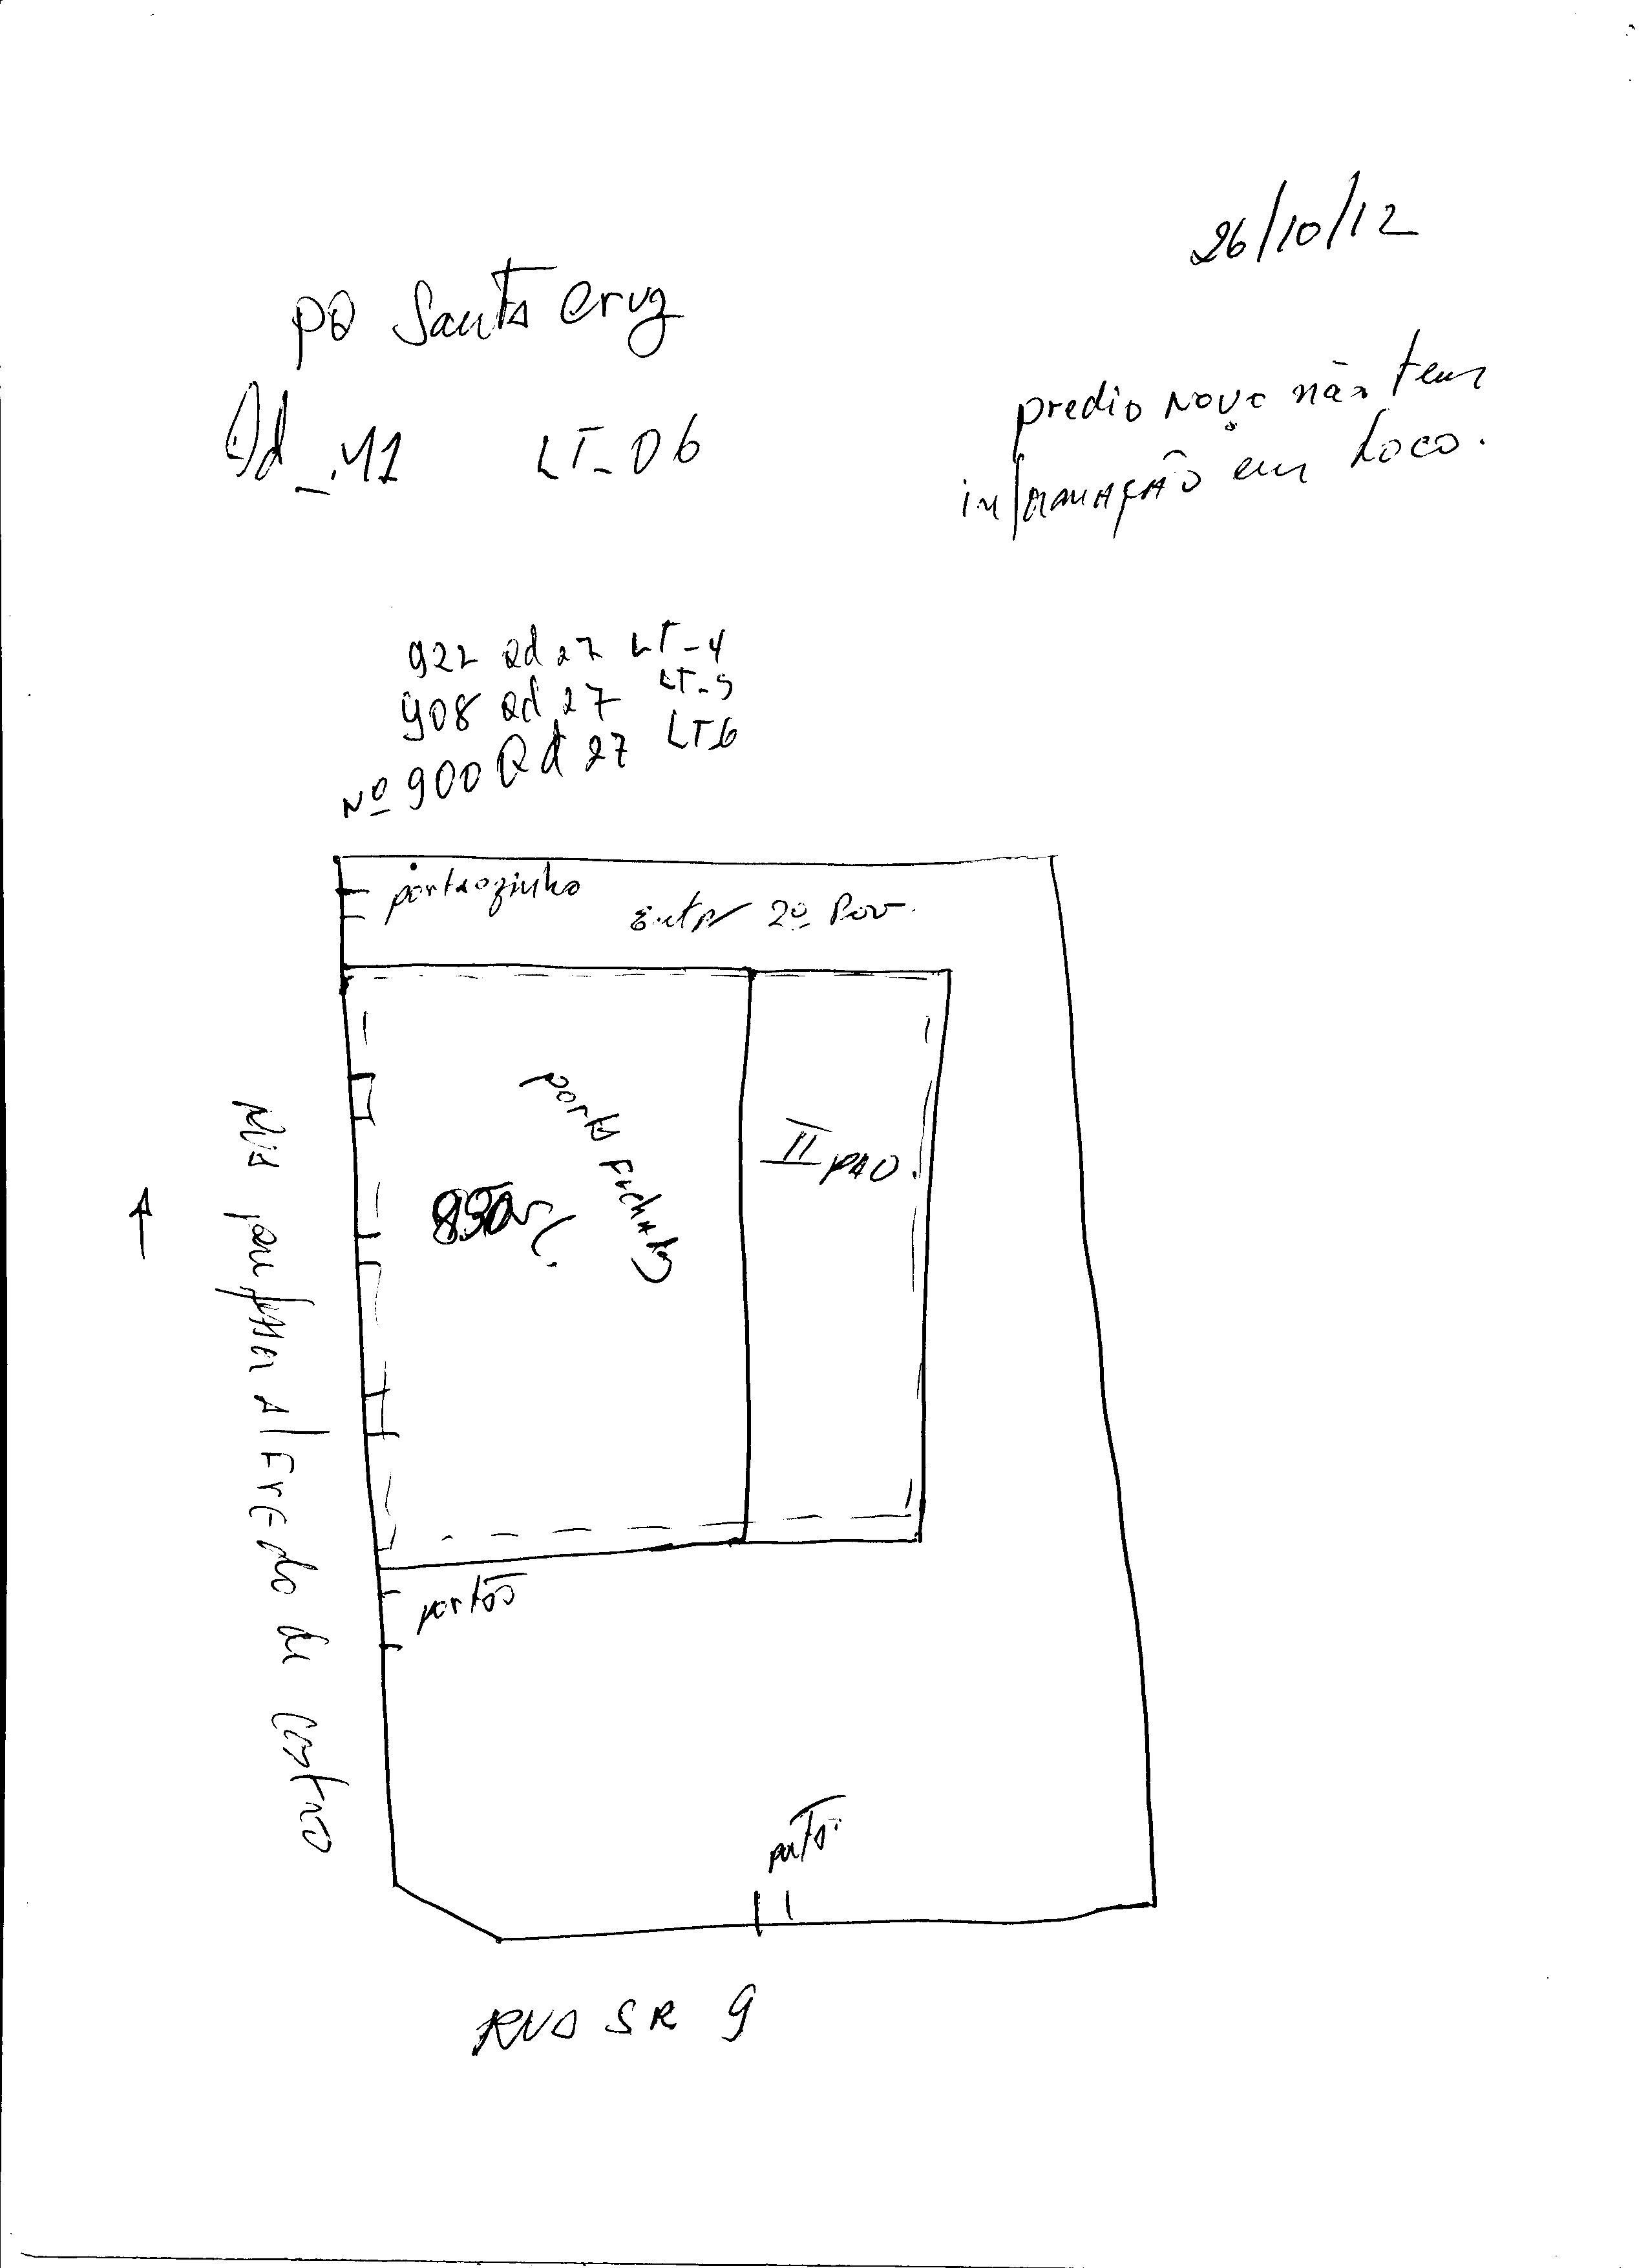 26/10/12
PQ Santa Cruz
Qd_ 11 LT_06
predio Novo não tem
informação em Loco.
922 Qd 27 LT_4
908 Qd 27 LT_5
Nº 900 Qd 27 LT6
portaozinho
Entr 2º Pav.
porta Fechada
II PAV.
Rua professor Alfredo de Castro
portão
portão
RUA SR 9